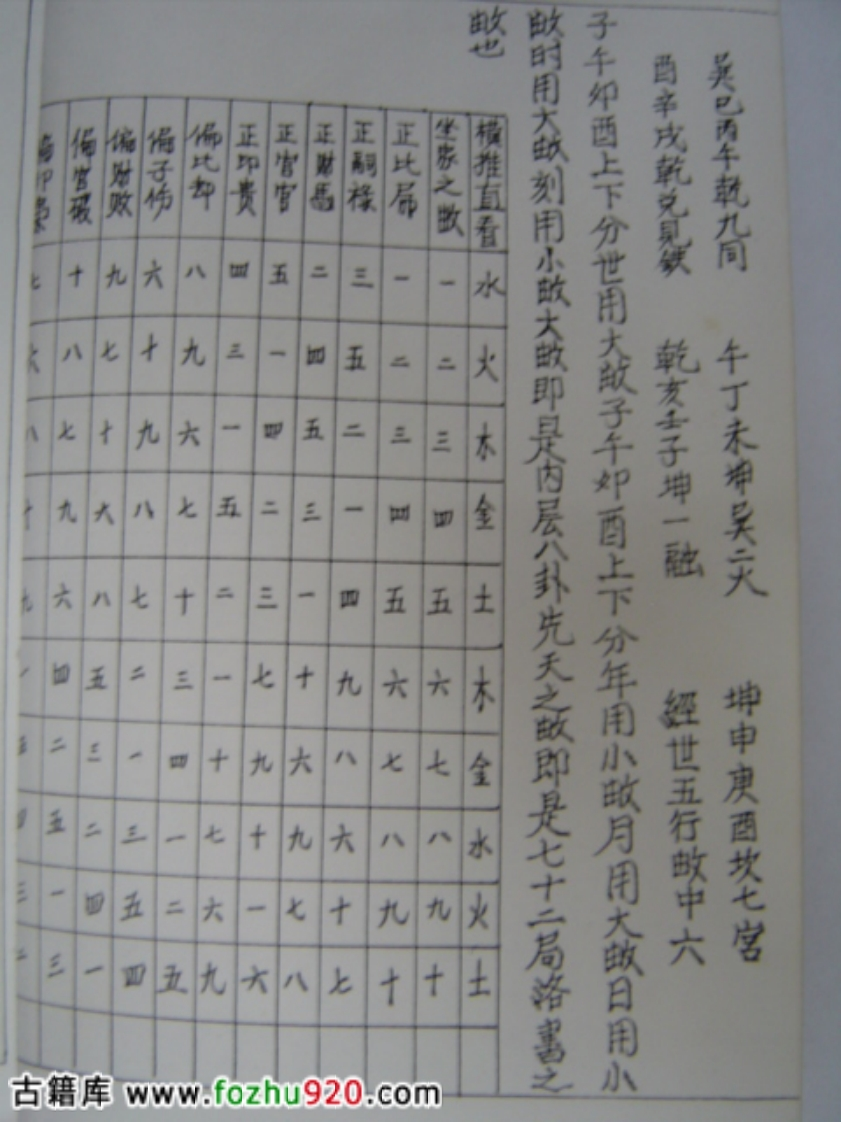 巽巳丙午乾九同 午丁未坤巽二火 坤申庚酉坎七宮
酉辛戌乾兌見錢 乾亥壬子坤一融 經世五行敀中六
子午卯酉上下分世用大敀子午卯酉上下分年用小敀月用大敀日用小
敀时用大敀刻用小敀大敀即是内层八卦先天之敀即是七十二局洛書之
敀也
橫推直看 水 火 木 金 土 木 金 水 火 土
坐家之敀 一 二 三 四 五 六 七 八 九 十
正比局 一 二 三 四 五 六 七 八 九 十
正嗣祿 三 五 二 一 四 九 八 六 十 七
正财馬 二 四 五 三 一 十 六 九 七 八
正官官 五 一 四 二 三 七 九 十 一 六
正印贵 四 三 一 五 二 一 十 七 六 九
偏比却 八 九 六 七 十 三 四 一 二 五
偏子伤 六 十 九 八 七 二 一 三 五 四
偏财败 九 七 十 六 八 五 三 二 四 一
偏官破 十 八 七 九 六 四 二 五 一 三
古籍库 www.fozhu920.com